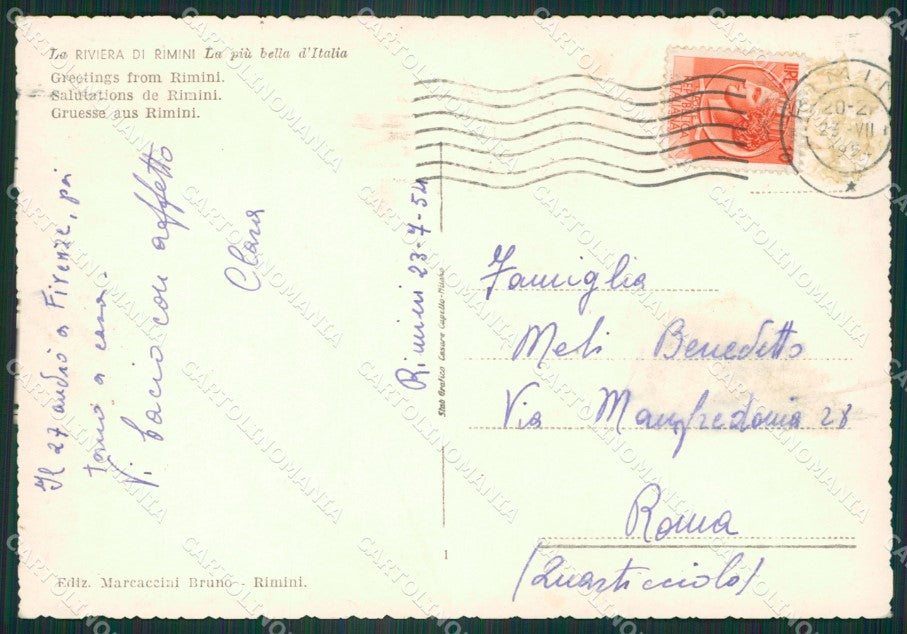 La RIVIERA DI RIMINI La più bella d'Italia
Greetings from Rimini.
Salutations de Rimini.
Gruesse aus Rimini.
Il 27 andrò a Firenze, poi
torno a casa.
Vi bacio con affetto
Clara
Rimini 23-7-54
Stab Grafico Cesare Capello-Milano
Famiglia
Meli Benedetto
Via Manfredonia 28
Roma
(Quarticciolo)
1
Ediz. Marcaccini Bruno - Rimini.
LIRE
20-21
23 VII
1954
CARTOLINOMANIA